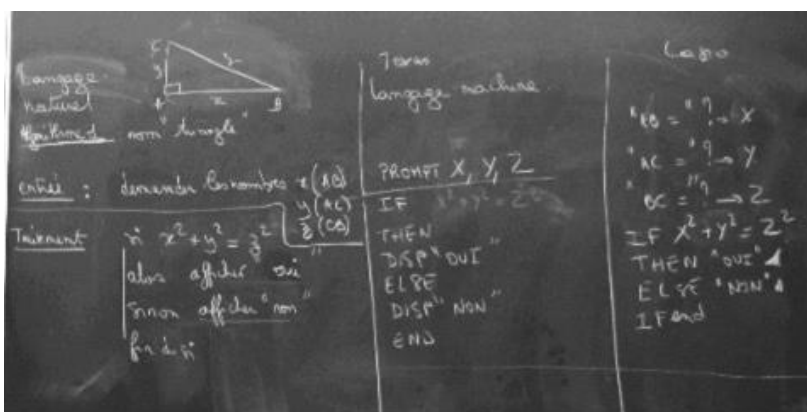 Langage
naturel
C
y
z
A
x
B
nom "triangle"
entrée : demander les nombres x (AB)
y (AC)
z (CB)
Traitement si x² + y² = z²
alors afficher "oui"
sinon afficher "non"
fin de si
Texas
langage machine
PROMPT X, Y, Z
IF X² + Y² = Z²
THEN
DISP "OUI"
ELSE
DISP "NON"
END
Casio
"AB = "? → X
"AC = "? → Y
"BC = "? → Z
IF X² + Y² = Z²
THEN "OUI" ◢
ELSE "NON" ◢
IFend